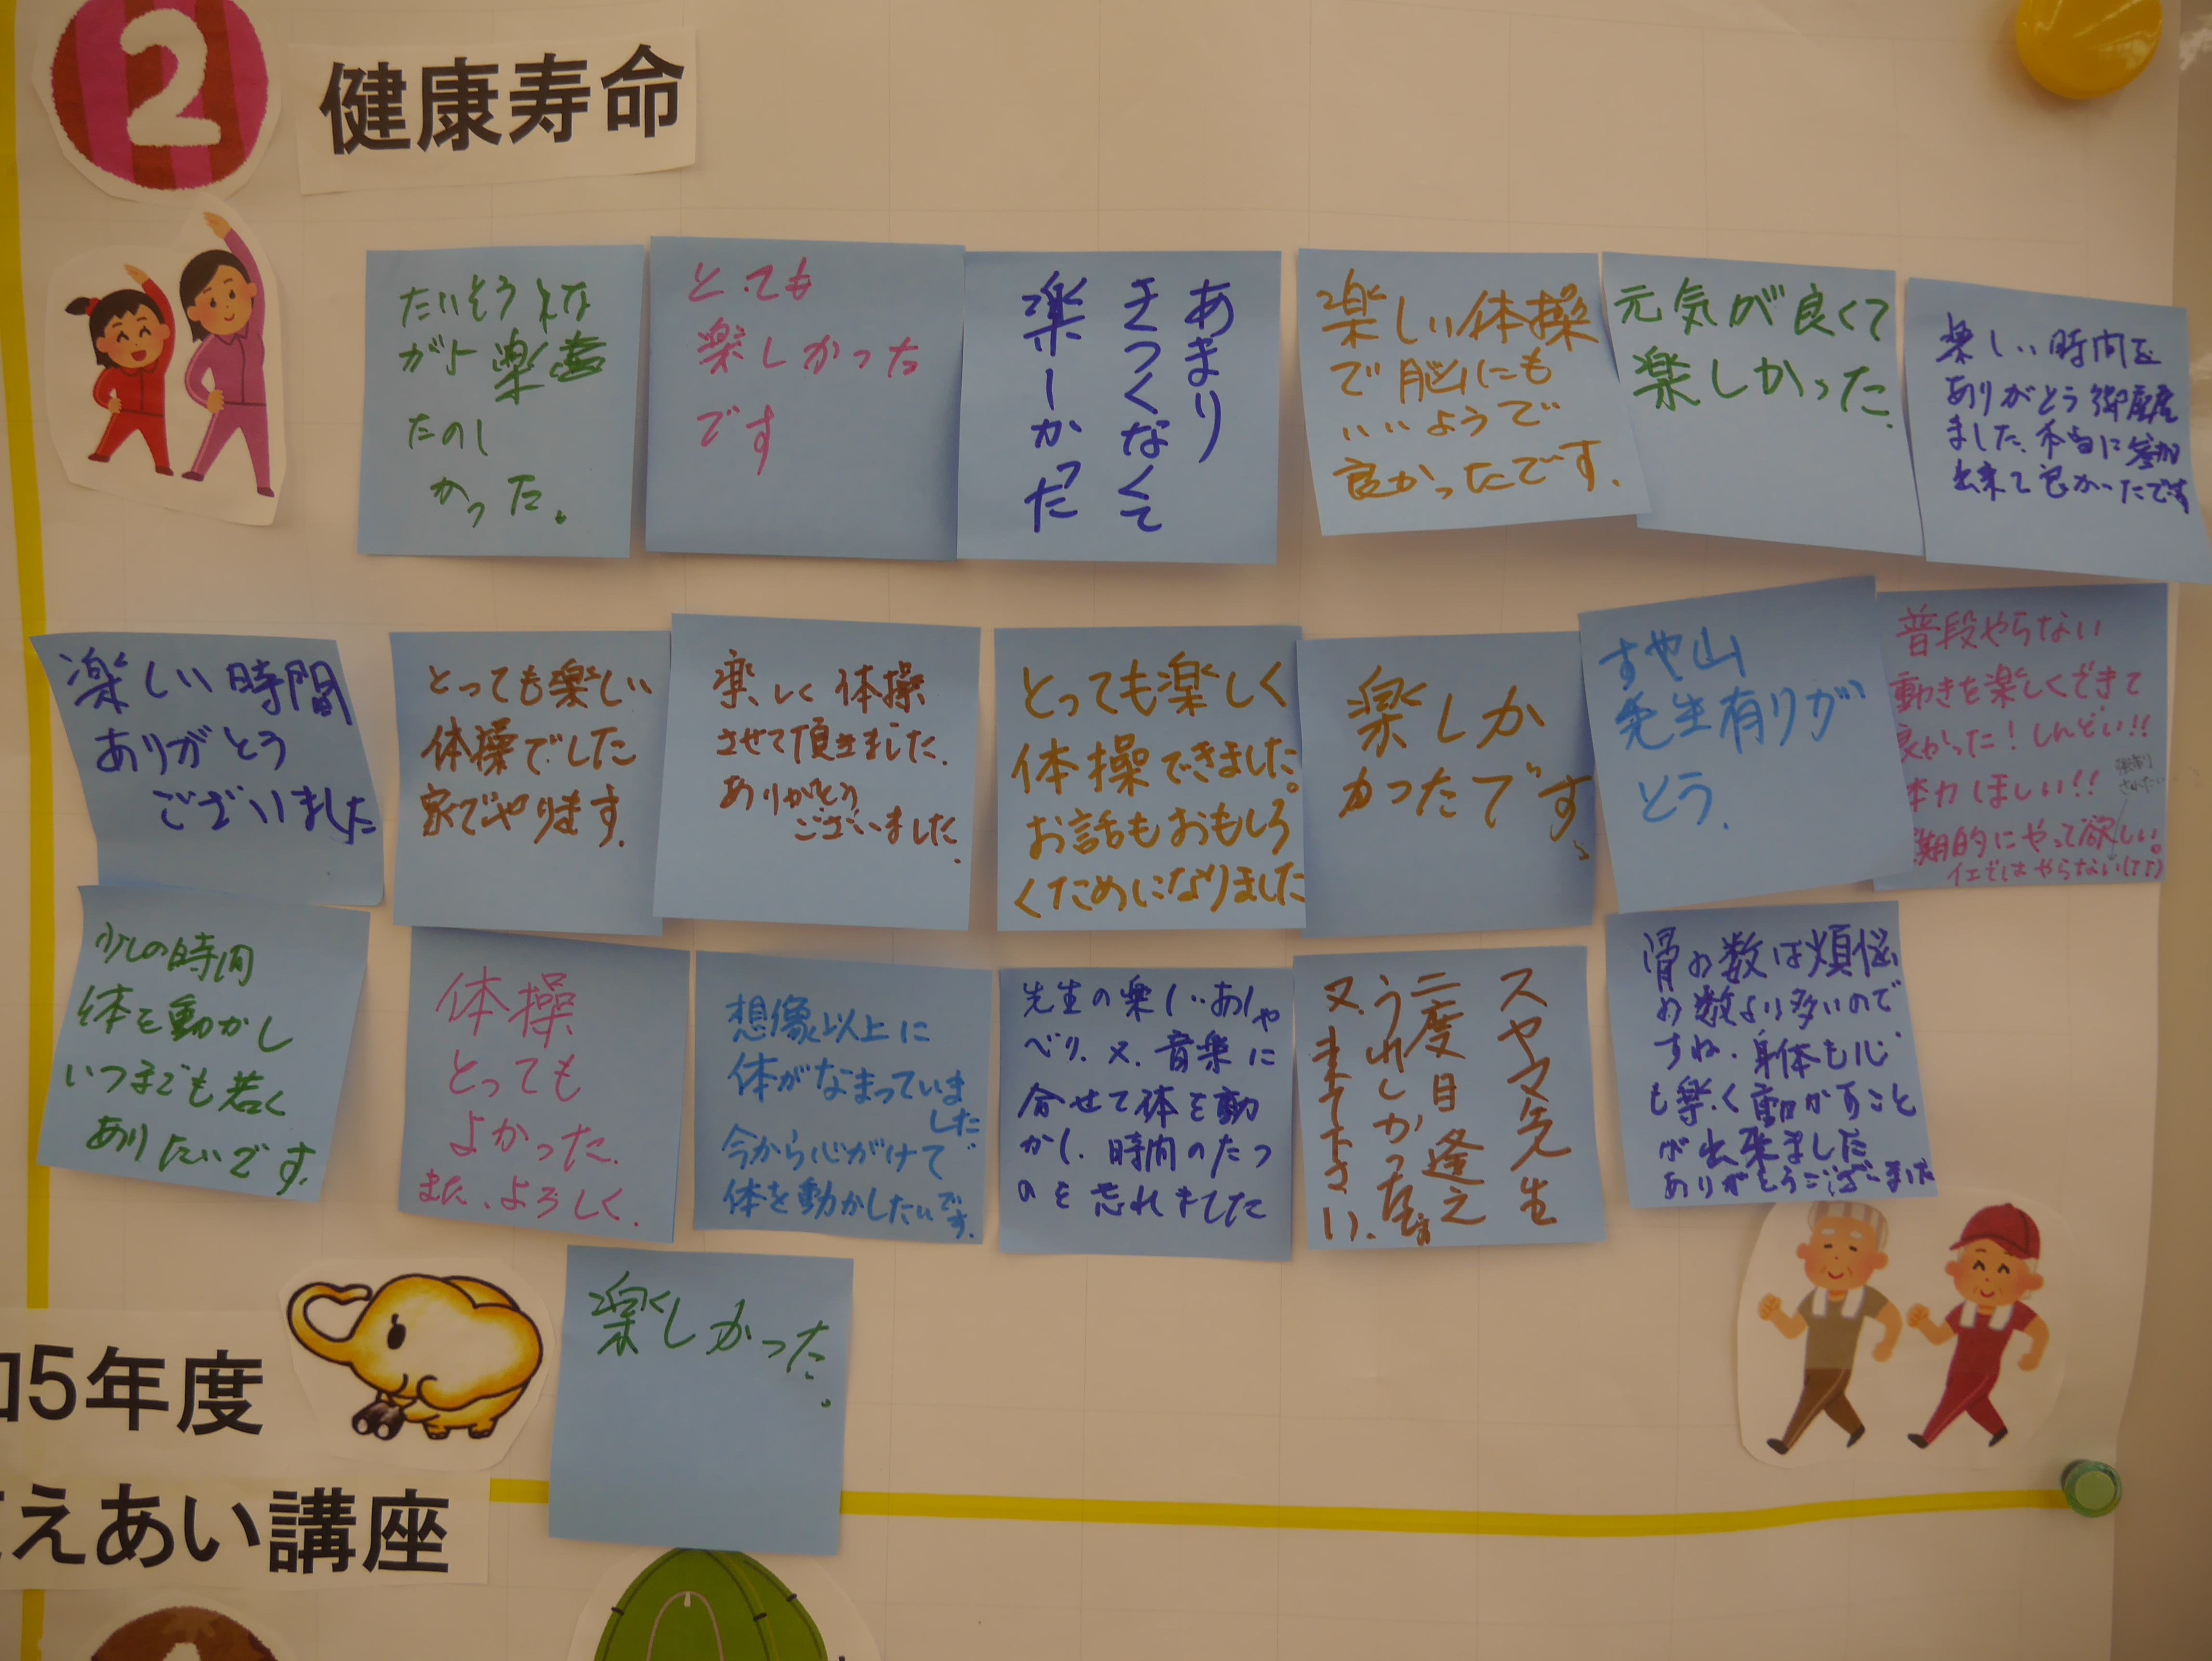 2
健康寿命
たいそう
がよ楽
たのし
かった。
とても
楽しかった
です
あまり
きつくなくて
楽しかった
楽しい体操
で脳にも
いいようで
良かったです.
元気が良くて
楽しかった.
楽しい時間を
ありがとう御座居
ました.本当に参加
出来て良かったです
楽しい時間
ありがとう
ございました
とっても楽しい
体操でした
家でやります.
楽しく体操
させて頂きました.
ありがとう
ございました.
とっても楽しく
体操できました。
お話もおもしろ
くためになりました
楽しか
かったです.
すや山
先生有りが
とう.
普段やらない
動きを楽しくできて
良かった!しんどい!!
体力ほしい!!
期的にやって欲しい。
イエではやらない(TT)
少しの時間
体を動かし
いつまでも若く
ありたいです.
体操
とっても
よかった.
また、よろしく.
想像以上に
体がなまっていま
した
今から心がけて
体を動かしたいです.
先生の楽しいおしゃ
べり.又.音楽に
合せて体を動
かし.時間のたつ
のを忘れました
スヤマ先生
二度目逢え
うれしかった
又.来て下さい.
骨の数は煩悩
の数より多いので
すね.身体も心
も楽しく動かすこと
が出来ました
ありがとうございました
楽しかった。
和5年度
えあい講座